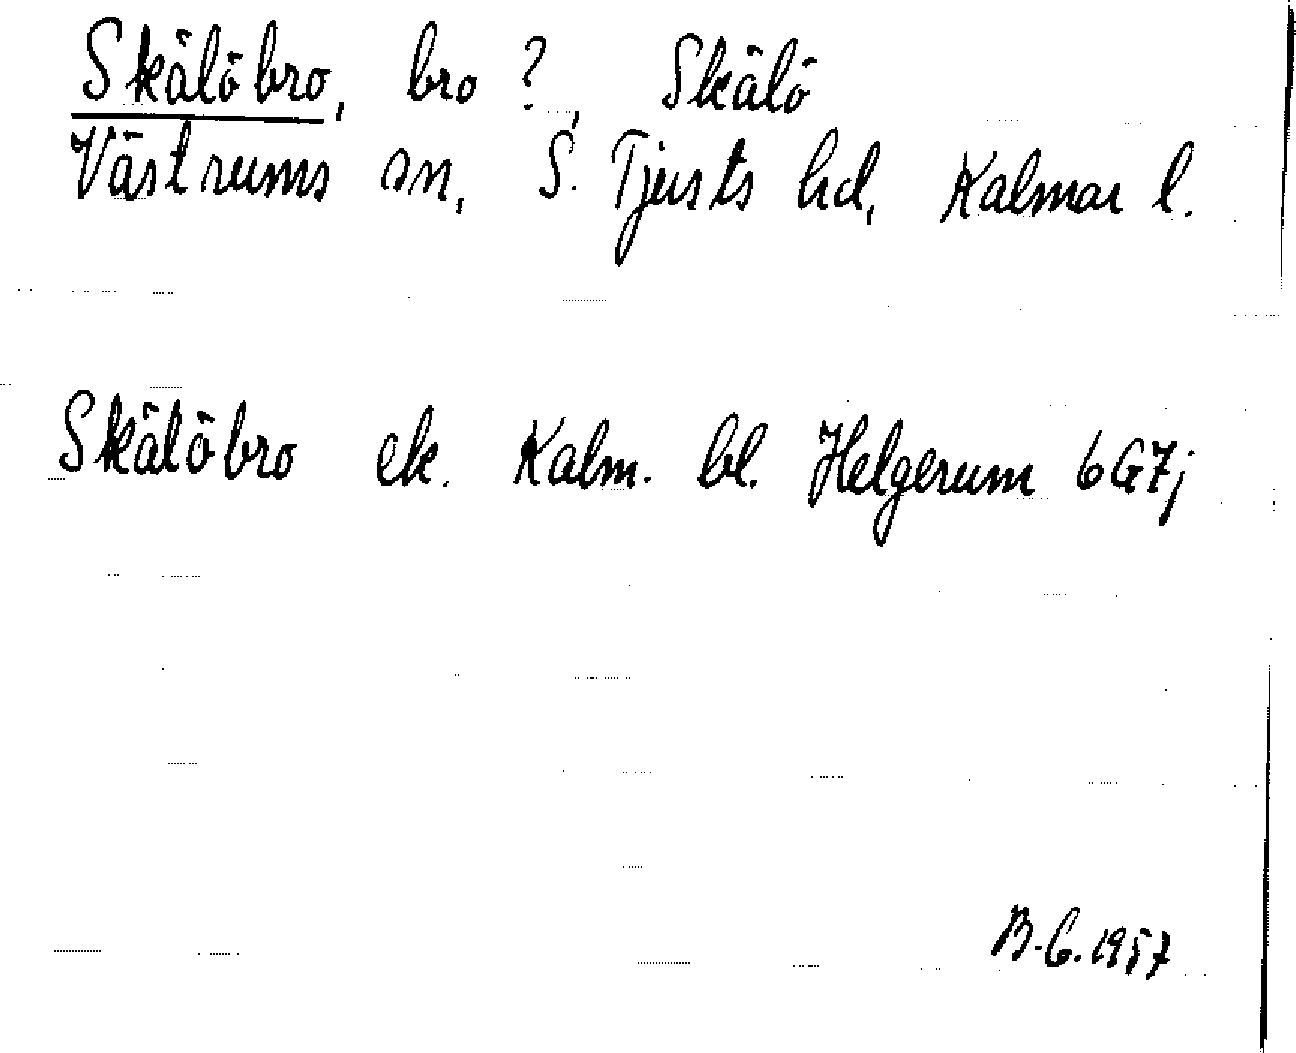 Skälöbro, bro ?, Skälö
Västrums sn, S. Tjusts hd, Kalmar l.
Skälöbro ek. Kalm. bl. Helgerum 6G7j
B-G. 1957